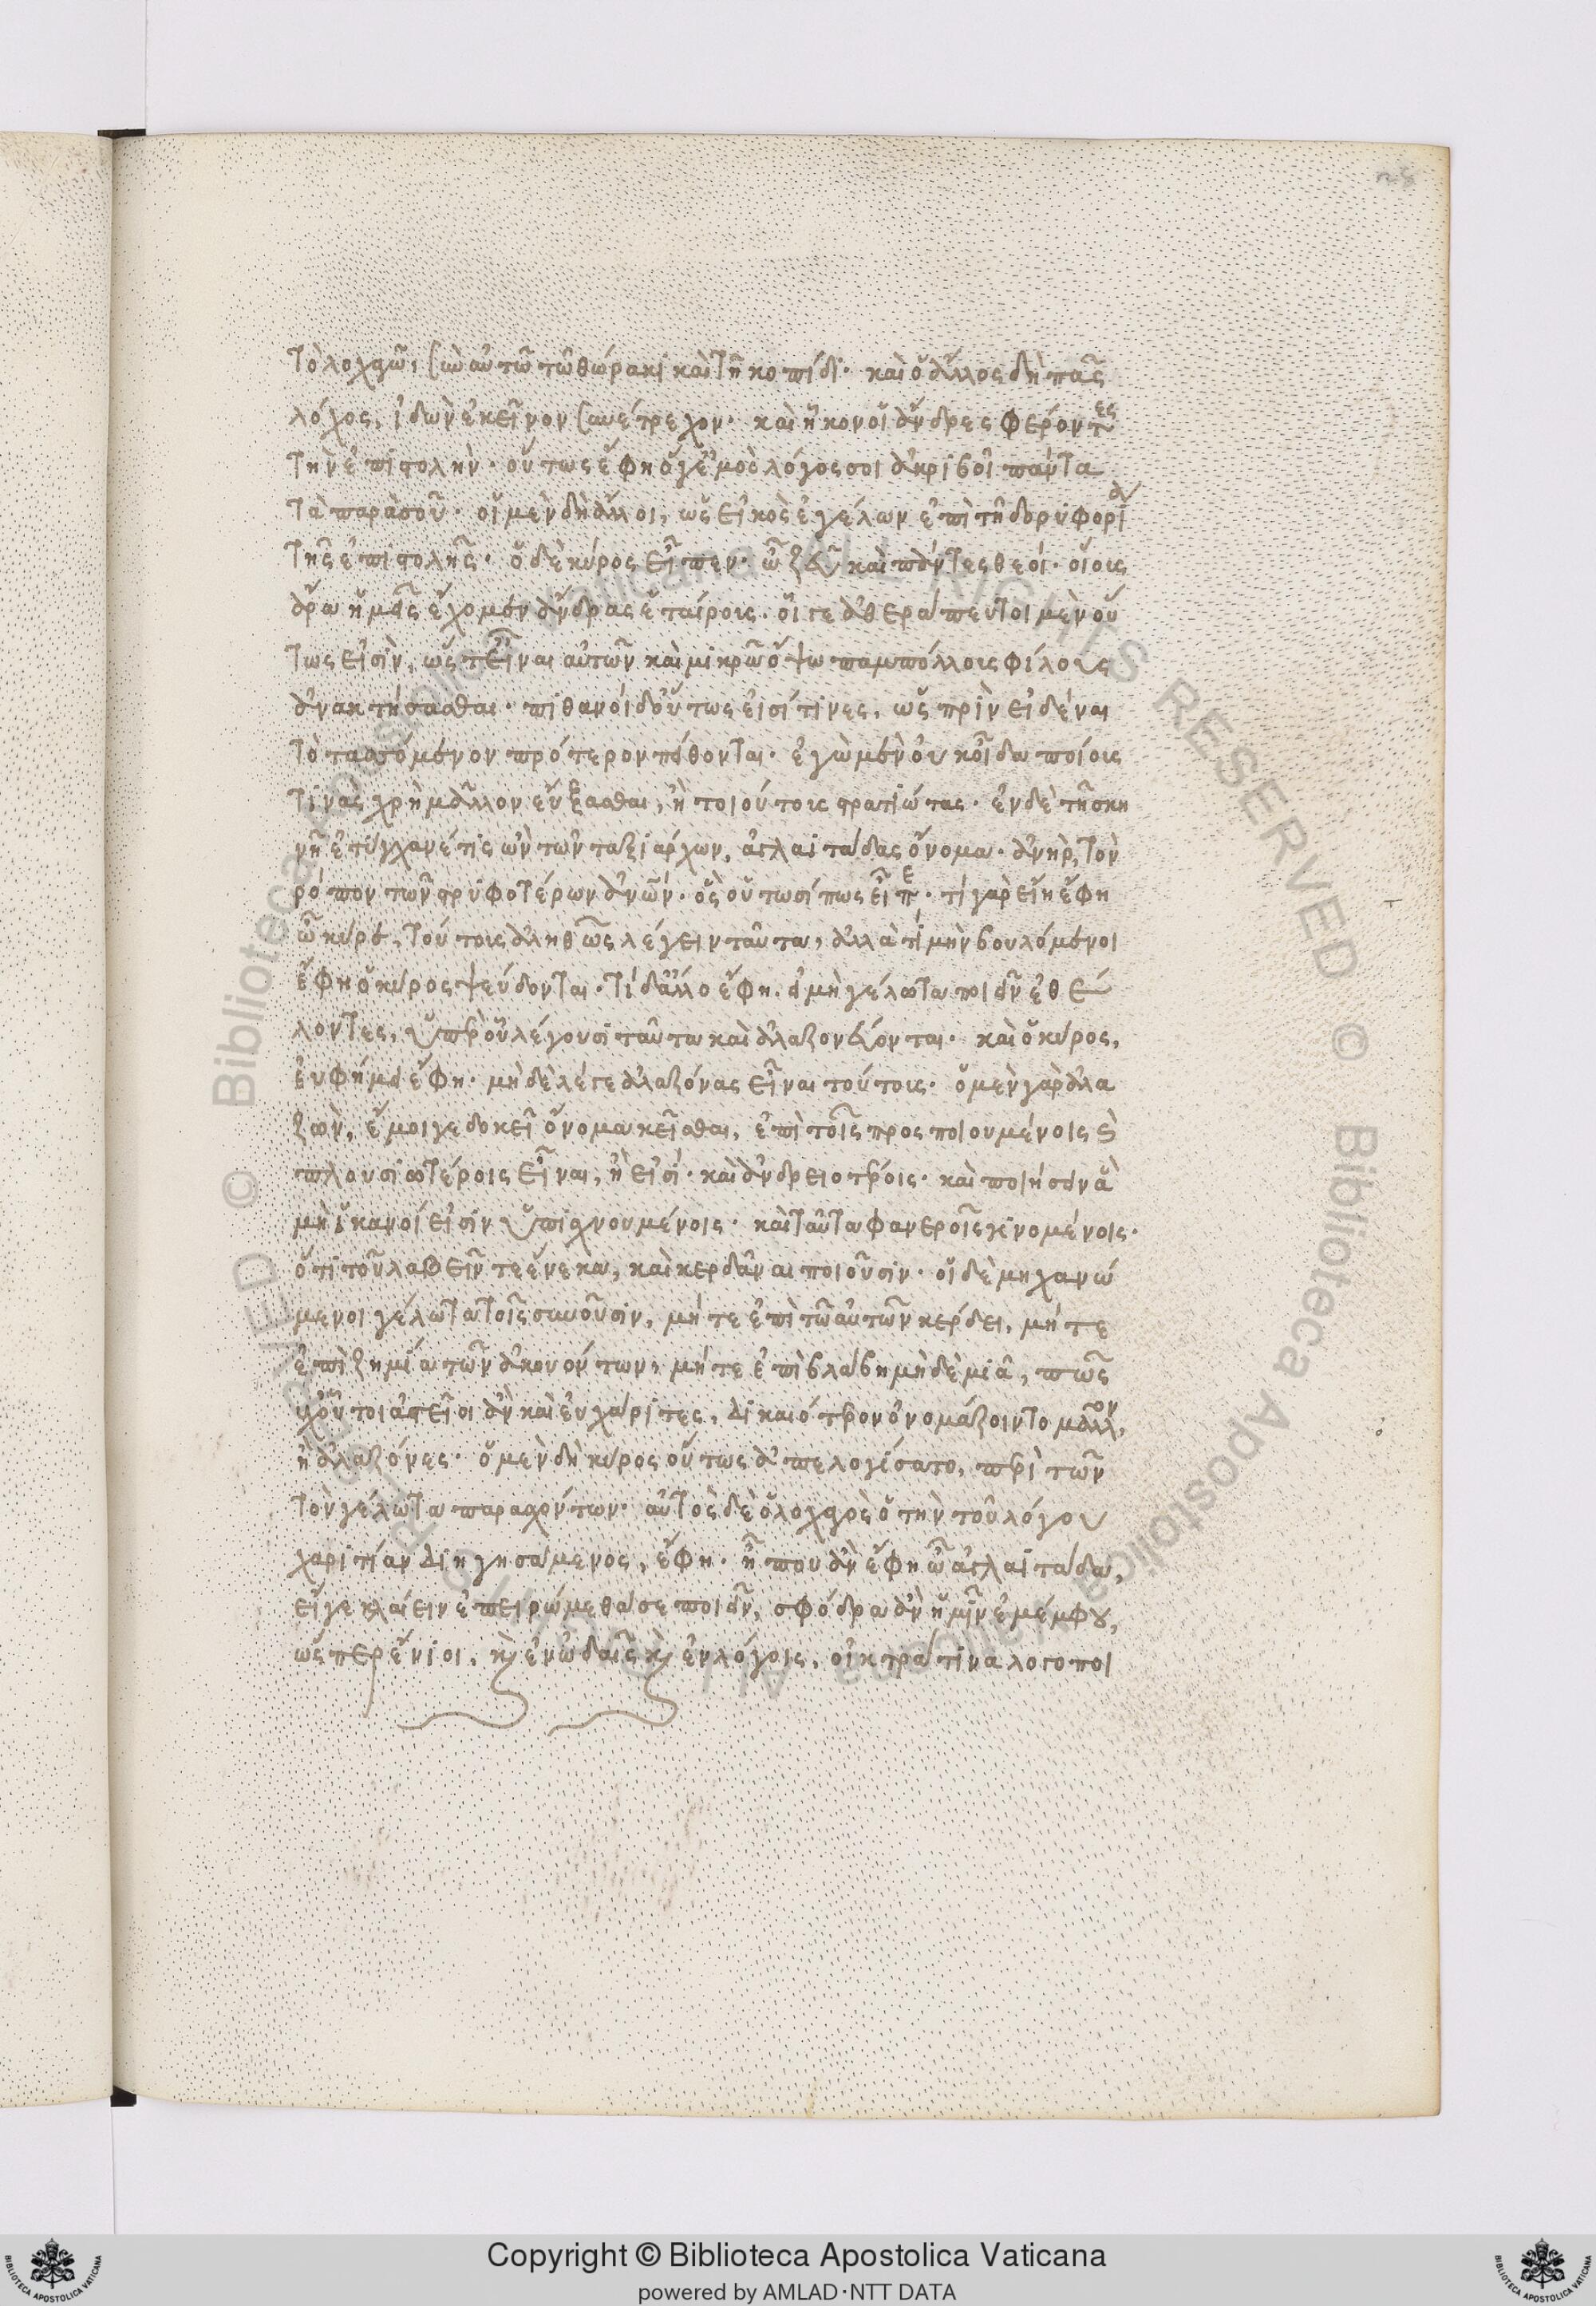 τῷ λοχαγῷ, σὺν αὐτῷ τῷ θώρακι καὶ τῇ κοπίδι· καὶ ὁ ἄλλος δὴ πᾶς
λόχος, ἰδὼν ἐκεῖνον συνέτρεχον· καὶ ἧκον οἱ ἄνδρες φέροντες
τὴν ἐπιστολήν· οὕτως ἔφη ὅ γ' ἐμὸς λόγος σοι ἀκριβοῖ πάντα
τὰ παρὰ σοῦ· οἱ μὲν δὴ ἄλλοι, ὡς εἰκὸς ἐγέλων ἐπὶ τῇ δορυφορίᾳ
τῆς ἐπιστολῆς· ὁ δὲ κῦρος εἶπεν· ὦ ζεῦ καὶ πάντες θεοί· οἵους
ἄρα ἡμεῖς ἔχομεν ἄνδρας ἑταίρους· οἵ γε ἀθεράπευτοι μὲν οὕ
τως εἰσὶν, ὥστ' εἶναι αὐτῶν καὶ μικρῷ ὄψω παμπόλλους φίλους
ἀνακτήσασθαι· πιθανοὶ δ' οὕτως εἰσί τινες, ὥς πρὶν εἰδέναι
τὸ ταττόμενον πρότερον πείθονται· ἐγὼ μὲν οὐκ οἶδα ποίους
τινὰς χρὴ μᾶλλον εὔξασθαι, ἢ τοιούτους στρατιώτας· ἐν δὲ τῇ σκη
νῇ ἐτύγχανέ τις ὢν τῶν ταξιάρχων, ἀγλαϊτάδας ὄνομα· ἀνὴρ, τὸν
ρόπον τῶν στρυφοτέρων ἀνῶν· ὃς οὑτωσί πως εἶπε· τί γὰρ εἴη ἔφη
ὦ κῦρε, τούτους ἀληθῶς λέγειν ταῦτα, ἀλλὰ τί μὴν βουλόμενοι
ἔφη ὁ κῦρος ψεύδονται· τί δ' ἄλλο ἔφη. εἰ μὴ γέλωτα ποιεῖν ἐθέ
λοντες, ὑπὲρ οὗ λέγουσι ταῦτα καὶ ἀλαζονεύονται· καὶ ὁ κῦρος,
εὐφήμει ἔφη· μὴ δὲ λέγε ἀλαζόνας εἶναι τούτους· ὁ μὲν γὰρ ἀλα
ζὼν, ἔμοιγε δοκεῖ ὄνομα κεῖσθαι, ἐπὶ τοῖς προσποιουμένοις καὶ
πλουσιωτέροις εἶναι, ἢ εἰσί· καὶ ἀνδρειοτέροις· καὶ ποιήσειν ἃ
μὴ ἱκανοί εἰσίν ὑπισχνουμένοις· καὶ ταῦτα φανεροῖς γινομένοις·
ὅτι τοῦ λαβεῖν τε ἕνεκα, καὶ κερδᾶναι ποιοῦσιν· οἱ δὲ μηχανώ
μενοι γέλωτα τοῖς συνοῦσιν, μήτε ἐπὶ τῷ αὐτῶν κέρδει, μήτε
ἐπὶ ζημίᾳ τῶν ἀκουόντων, μήτε ἐπὶ βλάβῃ μὴ δὲ μιᾷ, πῶς
οὐχ οὗτοι ἀστεῖοι ἂν καὶ εὐχάριτες, δικαιότερον ὀνομάζοιντο μᾶλλον,
ἢ ἀλαζόνες· ὁ μὲν δὴ κῦρος οὕτως ἀπελογίσατο, περὶ τῶν
τὸν γέλωτα παρασχόντων· αὐτὸς δὲ ὁ λοχαγὸς ὁ τὴν τοῦ λόχου
χαριτίαν διηγησάμενος, ἔφη· ἦ που ἂν ἔφη ὦ ἀγλαϊτάδα,
εἴγε κλαίειν ἐπειρώμεθά σε ποιεῖν, σφόδρα ἂν ἡμῖν ἐμέμφου,
ὥσπερ ἔνιοι, καὶ ἐν ᾠδαῖς καὶ ἐν λόγοις, οἰκτρά τινα λογοποι
Copyright © Biblioteca Apostolica Vaticana
powered by AMLAD·NTT DATA